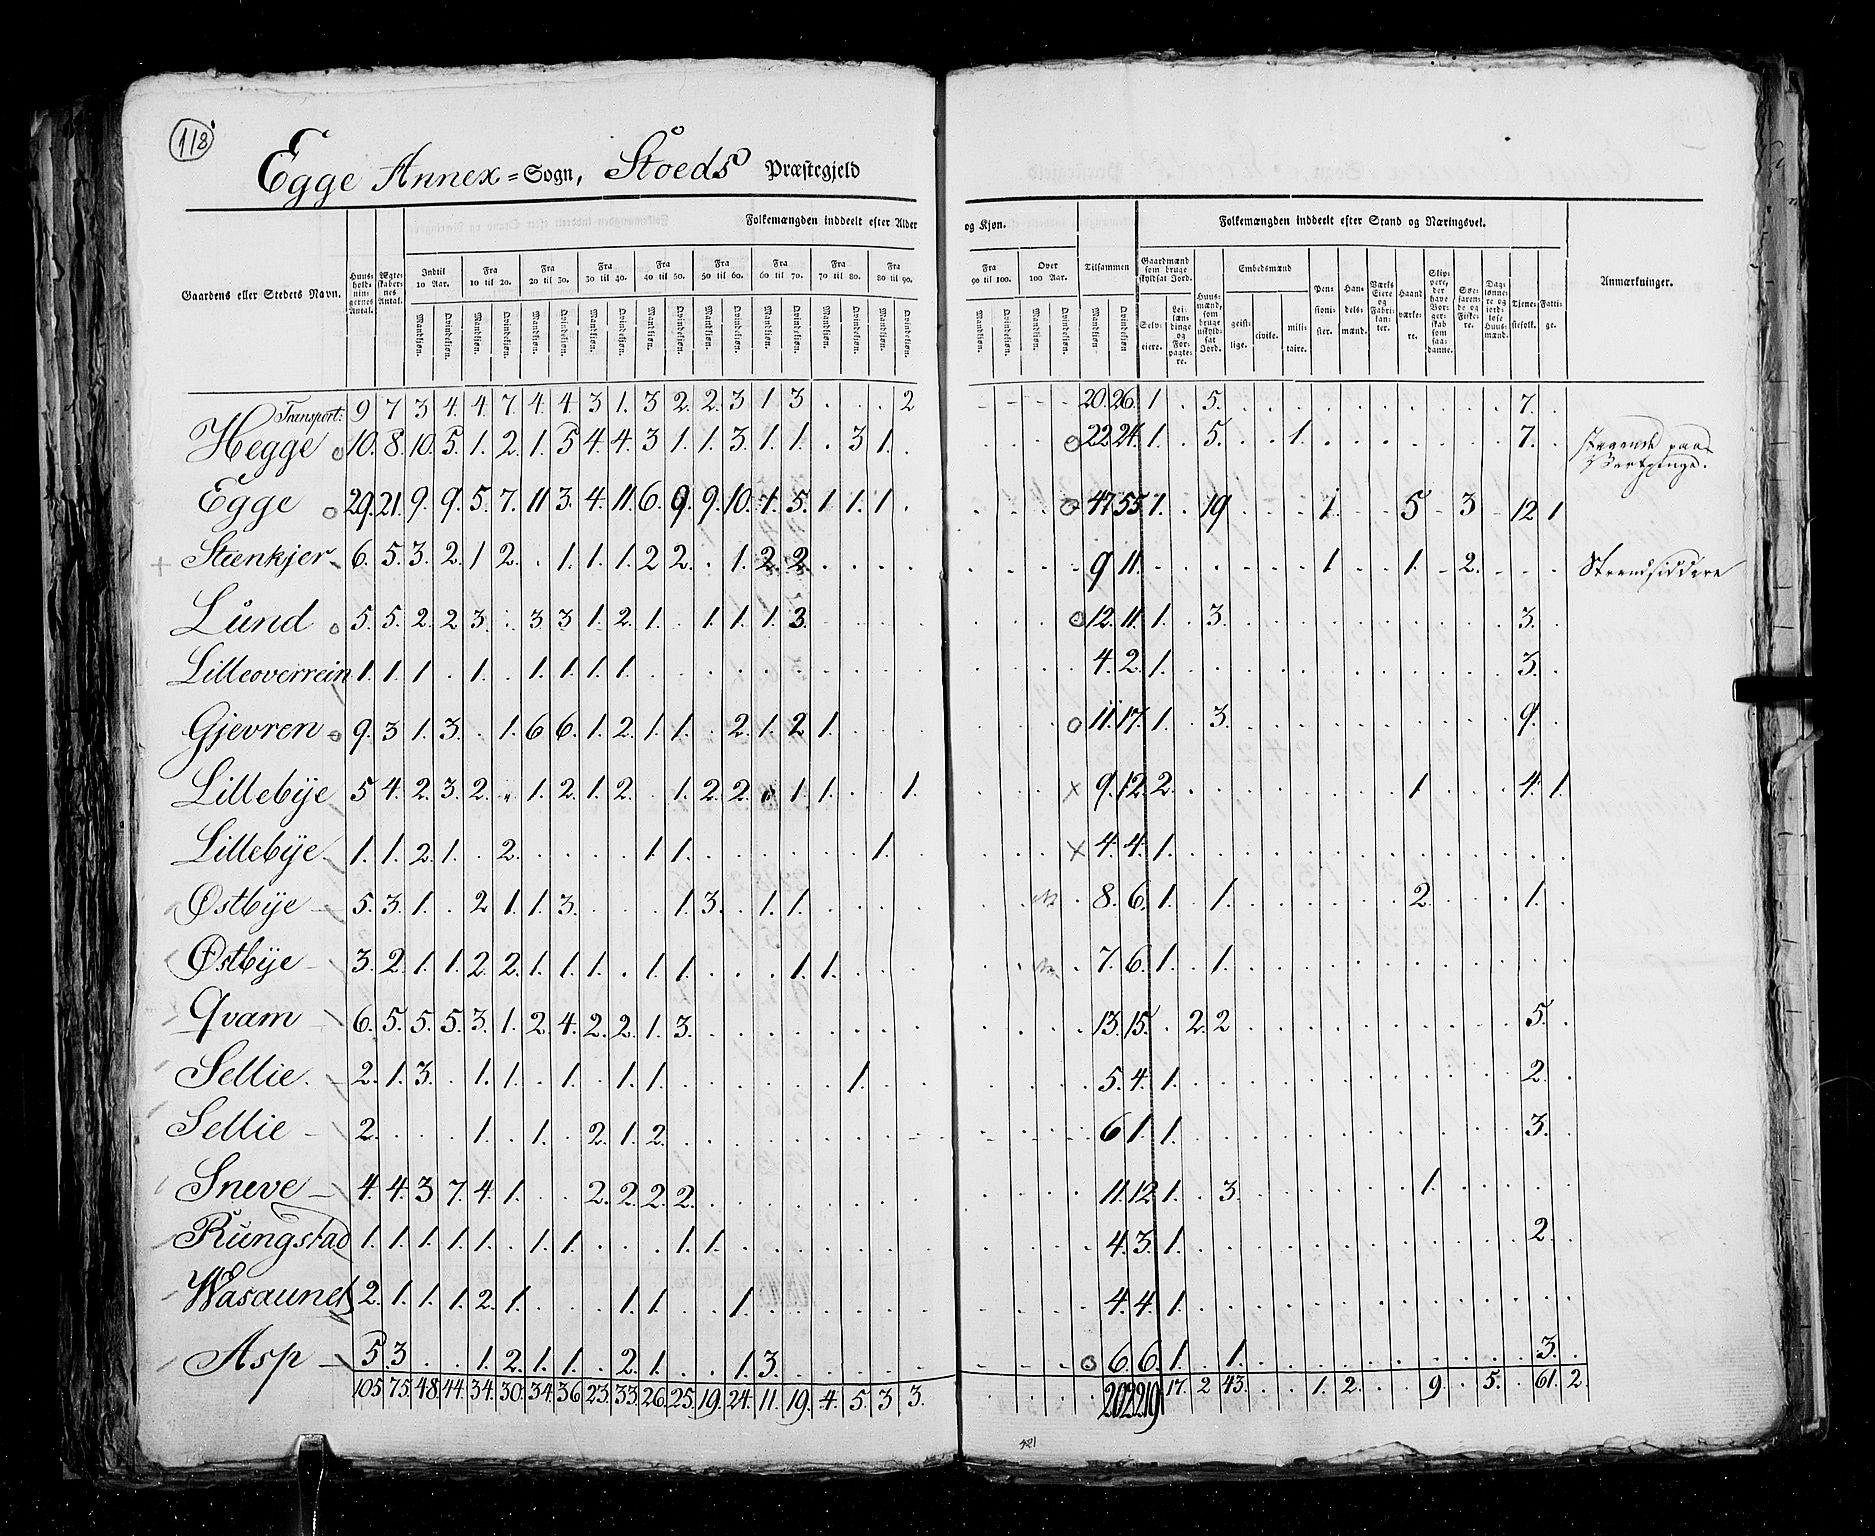 118
Egge Annex = Sogn, Stöeds Præstegjeld
Folkemængden inddeelt efter Alder og Kjøn.
Folkemængden inddeelt efter Stand og Næringsvei.
Gaardens eller Stedets Navn.
Huus-holdnin-gernes Antal.
Ægte-skaber-nes Antal.
Indtil 10 Aar.
Fra 10 til 20.
Fra 20 til 30.
Fra 30 til 40.
Fra 40 til 50.
Fra 50 til 60.
Fra 60 til 70.
Fra 70 til 80.
Fra 80 til 90.
Fra 90 til 100.
Over 100 Aar.
Tilsammen
Mandkjøn. Qvindekjøn.
Gaardmænd som bruge skyldsat Jord.
Selv-eiere.
Lei-læn-dinge og For-pagte-re.
Huus-mænd, som bruge uskyld-sat Jord.
Embedsmænd
geist-lige. civile. mili-taire.
Pen-sioni-ster.
Han-dels-mænd.
Værks Eiere og Fabri-kan-ter.
Haand-værke-re.
Skip-pere, der have Bor-ger-skab som saa-danne.
Søe-faren-de og Fiske-re.
Dag-lønne-re og jord-løse Huus-mænd.
Tjene-stefolk.
Fatti-ge.
Anmærkninger.
Transport: 9 7 3 4. 4. 7. 4. 4. 3 1. 3 2. 2. 3 1 3 . . . 2 20. 26. 1 . 5. 7.
Hegge 10. 8. 10. 5. 1. 2. 1. 5 4. 4. 3 1. 1. 3. 1. 1. . 3 1. . 22. 24. 1. . 5. 1. 7.
Egge 29. 21. 9. 9. 5. 7. 11. 3. 4. 11. 6. 9. 9. 10. 4. 5. 1 1. 1. . 47. 55. 1. . 19 1. 5 3 12 1
Steenkjer 6. 5. 3. 2. 1 2. . 1. 1. 1. 2 2. . 1. 2. 2. 9 11. 1 1. 2. Strandsiddere
Lund 5. 5. 2. 2 3. . 3. 3 1. 2. 1. . 1. 1. 1. 3. 12. 11. 1. . 3. 3.
Lilleoverrein 1. 1. 1 . 1. . 1. 1. 1. 1. 4. 2. 1. 3.
Gjevren 9. 3 1. 3. . 1. 6 6. 1. 2. 1. 1. . 2. 1. 2 1. 11. 17. 1. . 3. 9.
Lillebÿe 5 4. 2. 3. 2. . 1. 2. 1. 2. . 1. 2. 2. . 1. 1. . . 1. 9. 12. 2. 1 4. 1.
Lillebÿe 1. 1. 2. 1. . 2. 1. 1. 1. 4. 4. 1.
Østbÿe 5. 3. 1. . 2 1. 1. 3. 1. 3. . 1. 1. 8. 6. 1. . 1. 2 1.
Østbÿe 3. 2. 1. 1. 2. 2. 1. 1. 1. . 1. 1. 1. 1. 7. 6. 1. . 1.
Qvam 6. 5. 5. 5. 3. 1. 2. 4. 2. 2. 1. 3. 13. 15. . 2. 2 5.
Sellie. 2. 1. 3. . 1. 1. . 1. . 1. 1. 1. 5. 4. 1. 2
Sellie 2. 1. . 1. . 2. 1. 2. 6 1. 1. 3.
Sneve 4. 4. 3 7. 4. 1. . . 2. 2. 2. 2. 11. 12. 1. . 3. 1. .
Rungstad 1. 1. 1. 1. 1. . 1. 1. . . . 1. 1. 4. 3. 1. 2.
Waasaunet 2. 1. 1. 1. 2. 1. 1. 1. . . 1. 4. 4. 1.
Asp 5. 3. . . 1. 2. 1. 1. . 2. 1. . . 1. 3. 6. 6. 1. . 1. 3.
105 75. 48. 44. 34. 30. 34. 36 23. 33. 26. 25. 19. 24. 11. 19. 4. 5. 3 3. 202 219 17. 2 43. 1. 2. 9. 5. 61. 2.
421